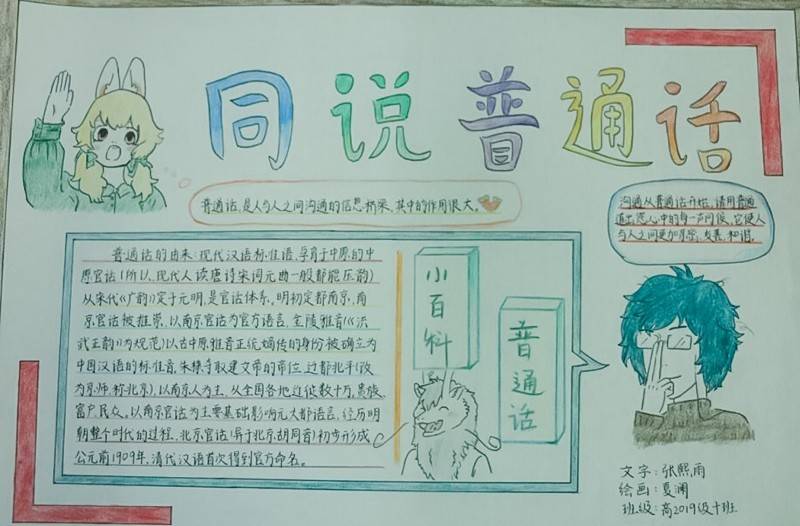 同说普通话
普通话,是人与人之间沟通的信息桥梁,其中的作用很大。
沟通从普通话开始,请用普通
话道出您心中的每一声问候,它使人
与人之间更加明亮、友善、和谐。
普通话的由来:现代汉语标准语,孕育于中原的中
原官话(所以,现代人读唐诗宋词元曲一般都能压韵)
从宋代《广韵》定于元明,是官话体系,明初定都南京,南
京官话被推崇,以南京官话为官方语言,金陵雅音(《洪
武正韵》为规范)以古中原雅音正统嫡传的身份被确立为
中国汉语的标准音,朱棣夺取建文帝的帝位,迁都北平(改
为京师,称北京),以南京人为主,从全国各地迁徙数十万,贵族、
富户、民众。以南京官话为主要基础,影响元大都语言,经历明
朝整个时代的过程,北京官话(异于北京胡同音)初步形成
公元前1909年,清代汉语首次得到官方命名。
小百科
普通话
文字:张熙雨
绘画:夏澜
班级:高2019级十班